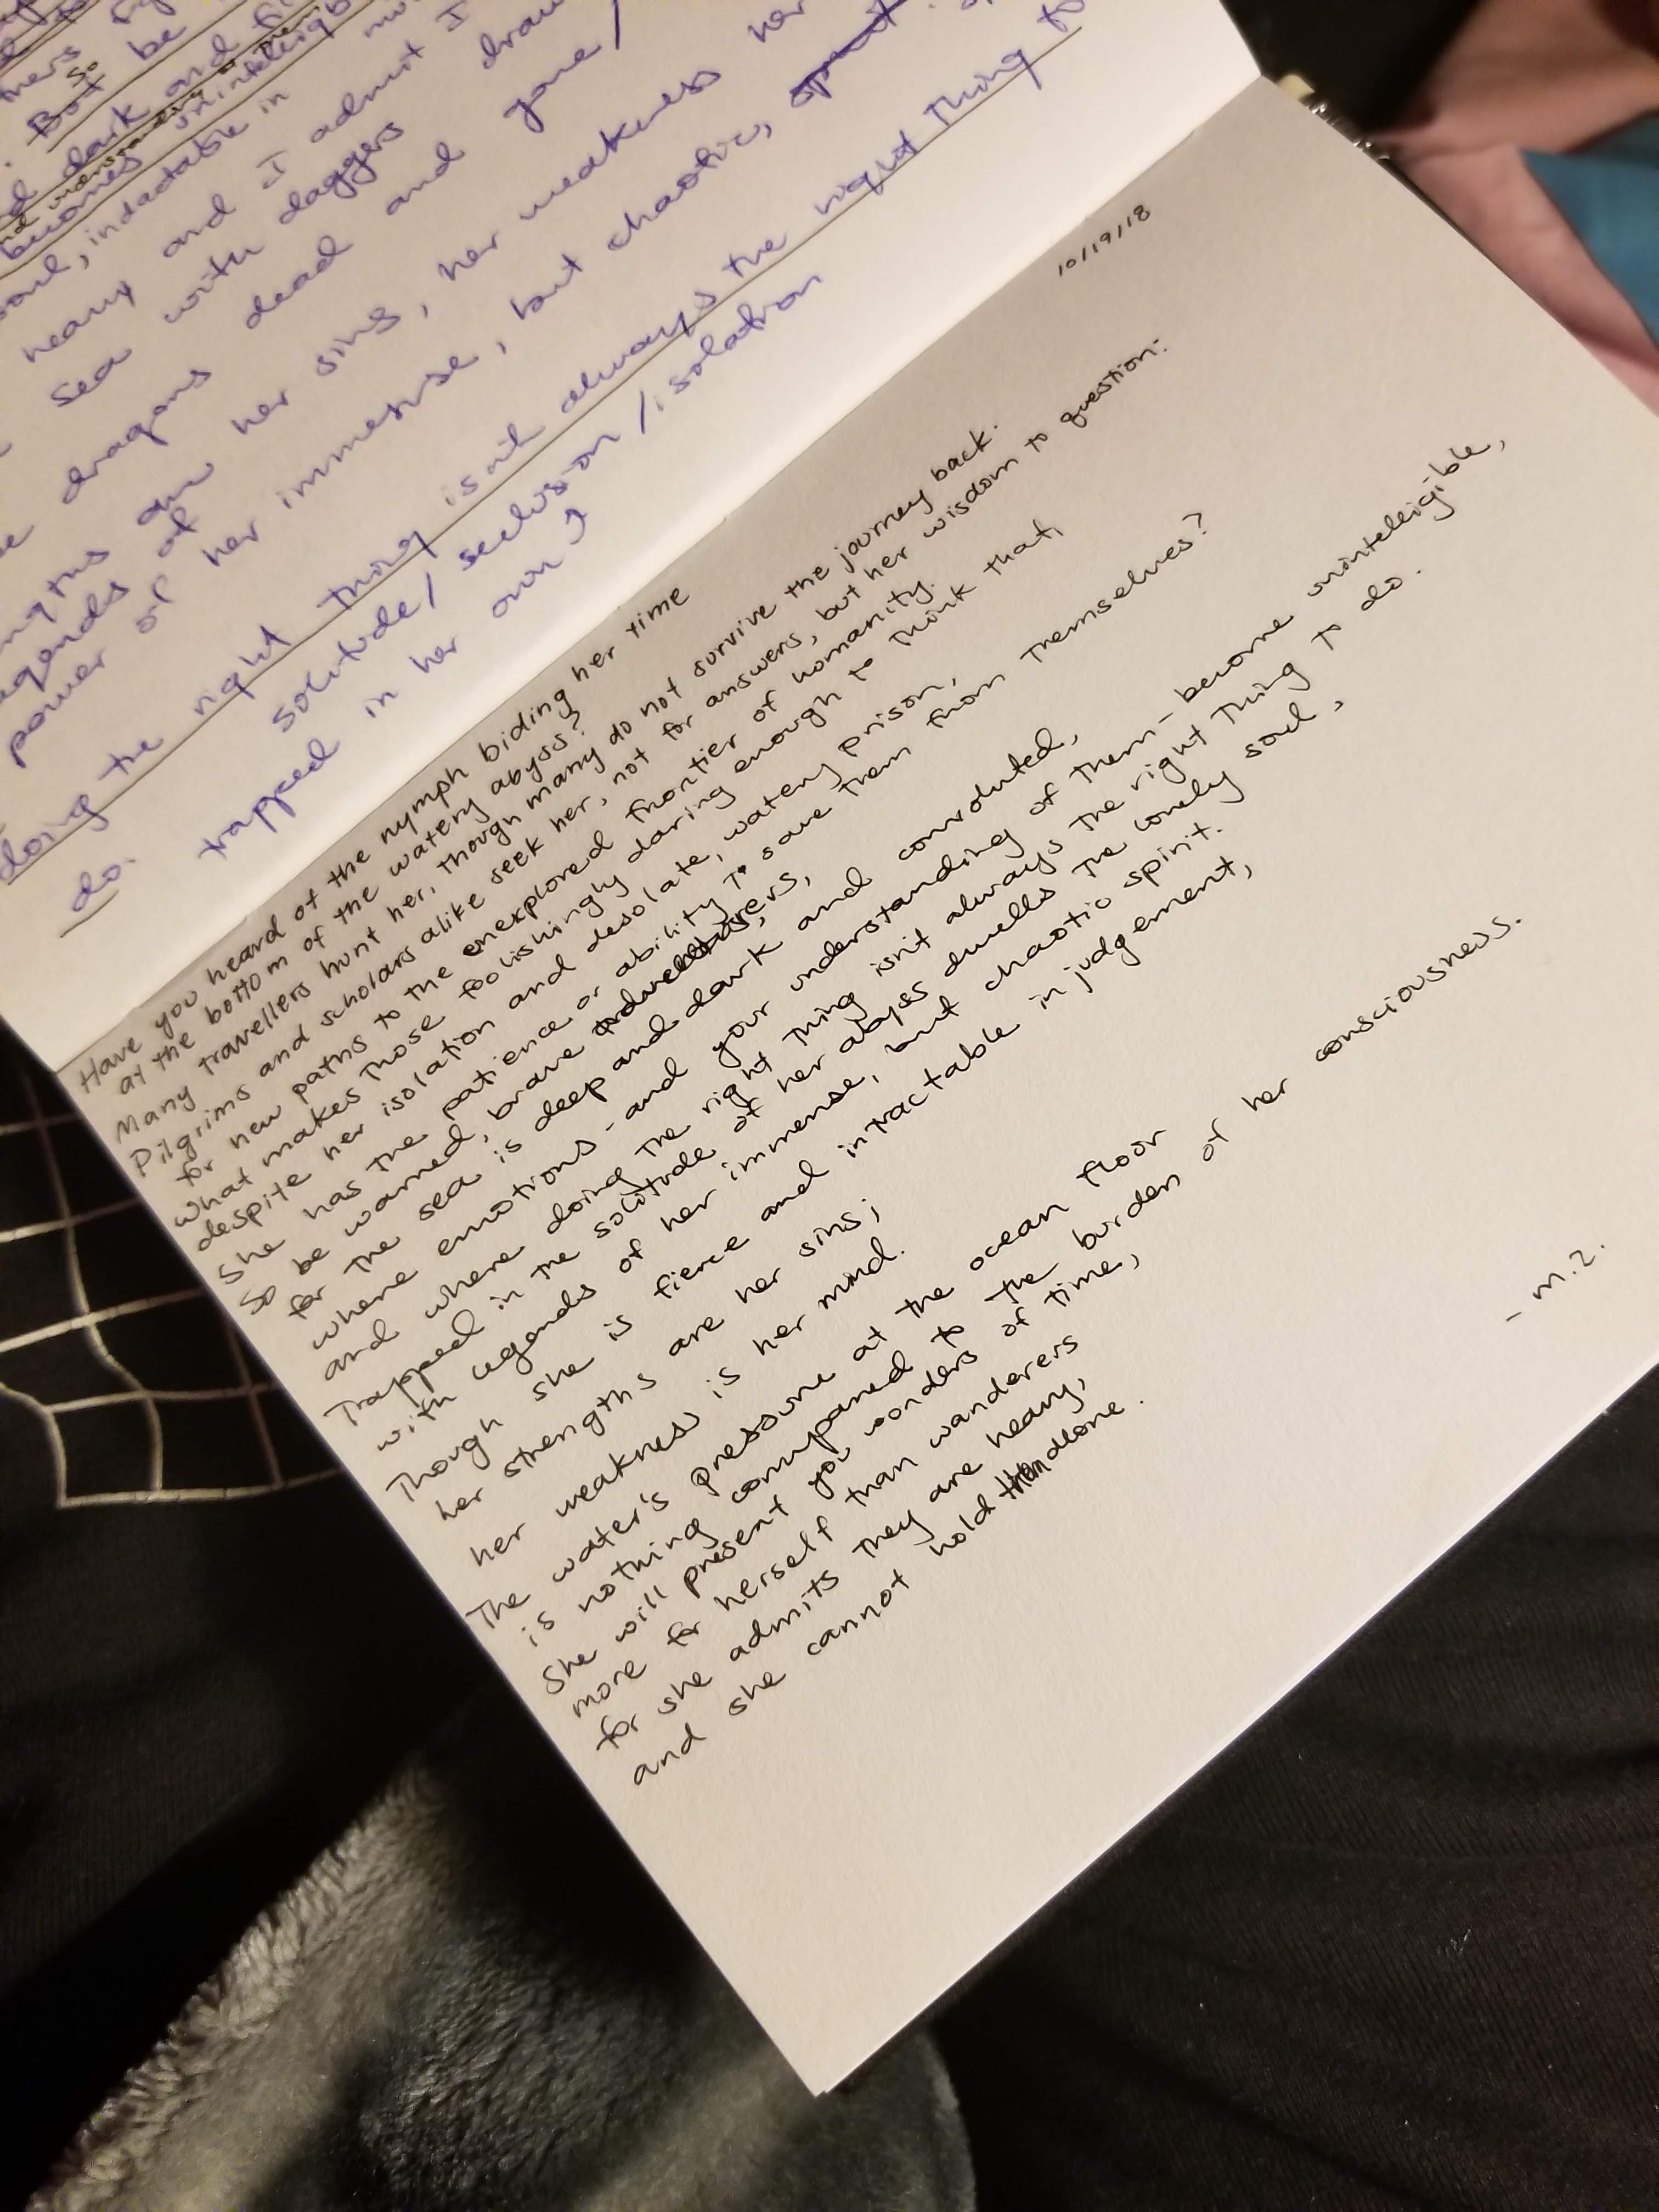 . But so be
dark and fi
becomes unintelligib
soul, intractable in
heavy and I admit I
sea with daggers draw
dragons dead and gone/
her sins, her weakness her
legends of
power of her immense, but chaotic,
doing the right thing isn't always the right thing to
do.
solitude/seclusion/isolation
trapped in her own
10/19/18
Have you heard of the nymph biding her time
at the bottom of the watery abyss?
Many travellers hunt her, though many do not survive the journey back.
Pilgrims and scholars alike seek her, not for answers, but her wisdom to question:
for new paths to the enexplored frontier of humanity.
What makes those foolishingly daring enough to think that,
despite her isolation and desolate, watery prison,
She has the patience or ability to save them from themselves?
So be warned, brave
for the sea is deep and dark and convoluted,
where emotions - and your understanding of them - become uninteligible,
and where doing the right thing isn't always the right thing to do.
Trapped in the solitude of her abyss dwells the lonely soul,
with legends of her immense, but chaotic spirit.
Though she is fierce and intractable in judgement,
her strengths are her sins;
her weakness is her mind.
The water's pressure at the ocean floor
is nothing compared to the burden of her consciousness.
She will present you wonders of time,
more for herself than wanderers
for she admits they are heavy,
and she cannot hold them alone.
- m.z.